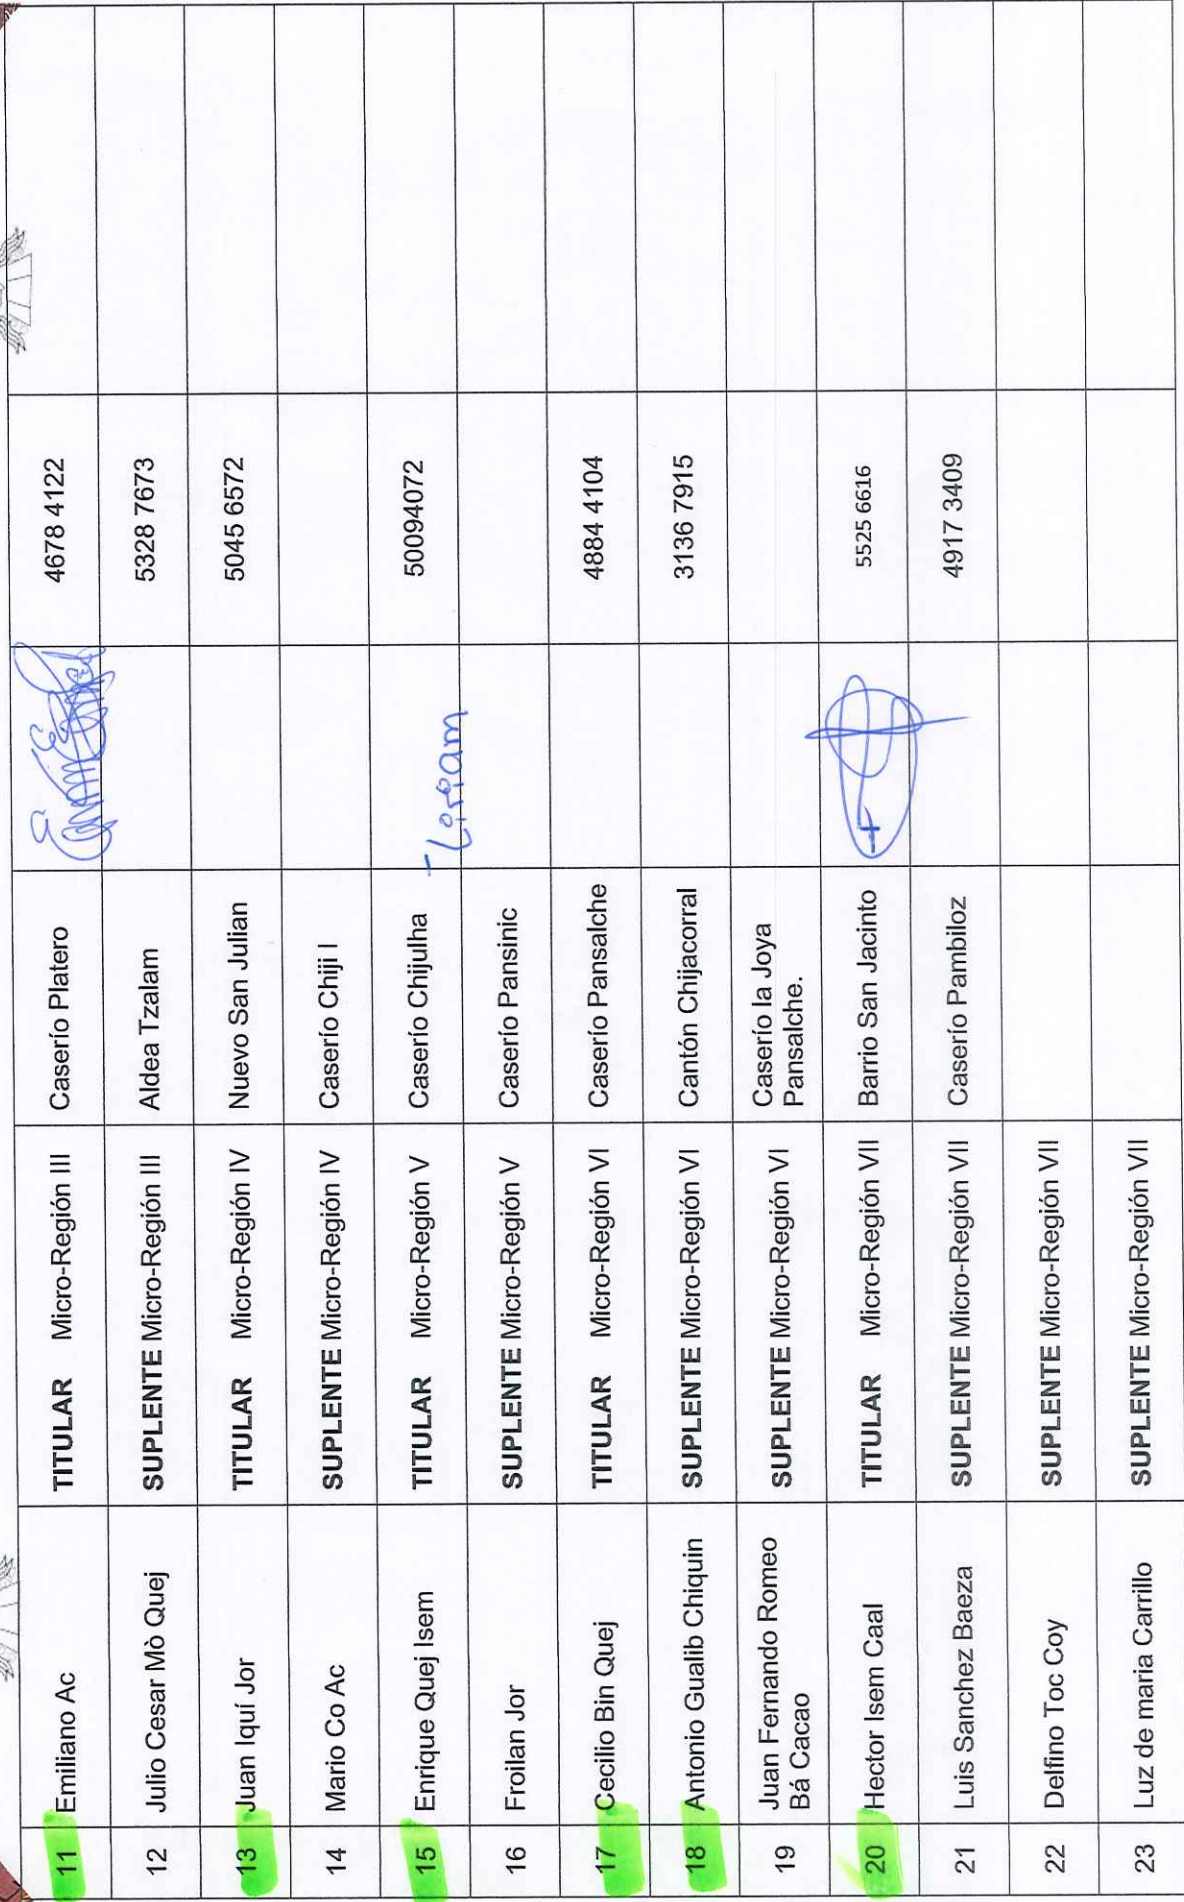 11 Emiliano Ac TITULAR Micro-Región III Caserío Platero 4678 4122
12 Julio Cesar Mò Quej SUPLENTE Micro-Región III Aldea Tzalam 5328 7673
13 Juan Iquí Jor TITULAR Micro-Región IV Nuevo San Julian 5045 6572
14 Mario Co Ac SUPLENTE Micro-Región IV Caserío Chiji I
15 Enrique Quej Isem TITULAR Micro-Región V Caserío Chijulha 50094072
16 Froilan Jor SUPLENTE Micro-Región V Caserío Pansinic
17 Cecilio Bin Quej TITULAR Micro-Región VI Caserío Pansalche 4884 4104
18 Antonio Gualib Chiquin SUPLENTE Micro-Región VI Cantón Chijacorral 3136 7915
19 Juan Fernando Romeo SUPLENTE Micro-Región VI Caserío la Joya
Bá Cacao Pansalche.
20 Hector Isem Caal TITULAR Micro-Región VII Barrio San Jacinto 5525 6616
21 Luis Sanchez Baeza SUPLENTE Micro-Región VII Caserío Pambiloz 4917 3409
22 Delfino Toc Coy SUPLENTE Micro-Región VII
23 Luz de maria Carrillo SUPLENTE Micro-Región VII